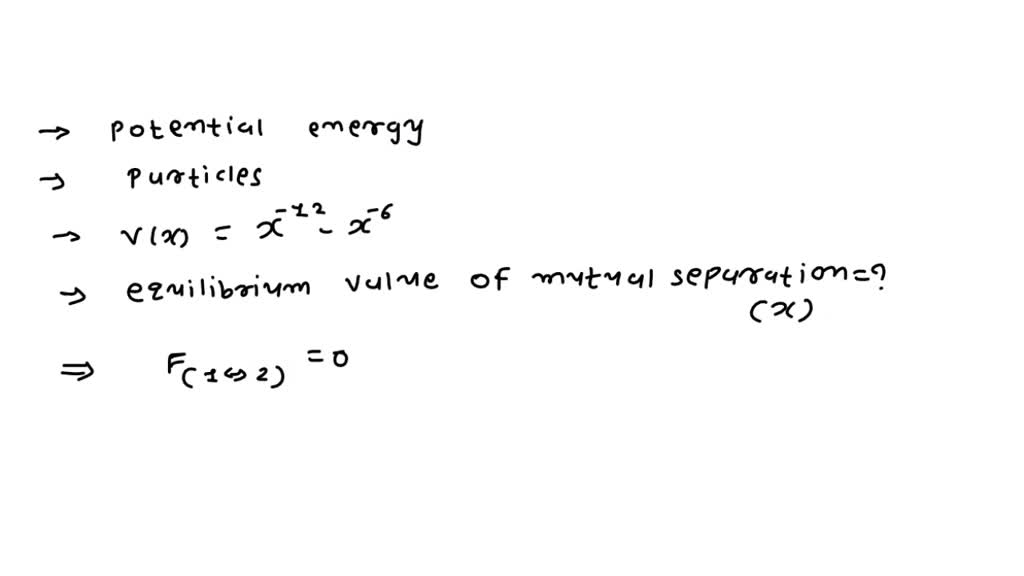 → potential energy
→ particles
→ v(x) = x⁻¹² - x⁻⁶
→ equilibrium value of mutual separation=?
(x)
⇒ F(1↔2) = 0